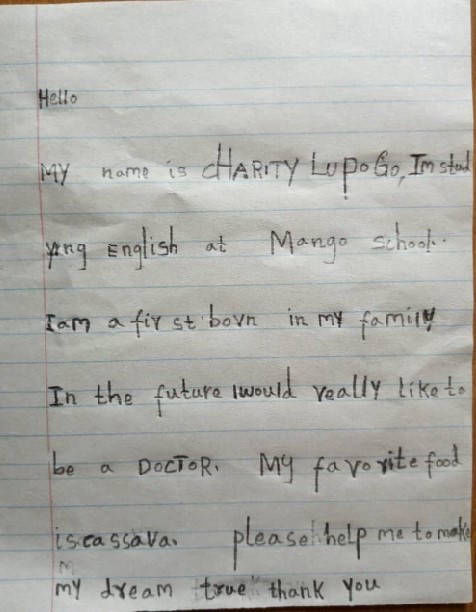 Hello
MY name is CHARITY LUPOGO, Im stud
ying English at Mango school.
Iam a first born in my family
In the future Iwould really like to
be a DOCTOR. My favorite food
is cassava. please help me to make
my dream true thank you